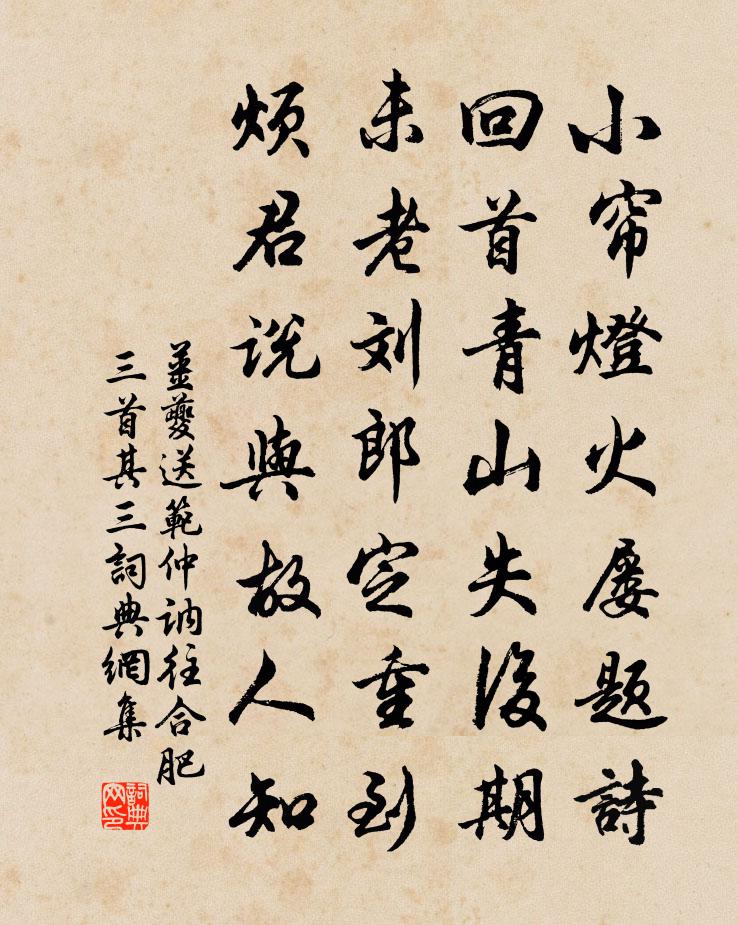 小帘燈火屡题詩
回首青山失後期
未老刘郎定重到
烦君说與故人知
姜夔送範仲讷往合肥
三首其三詞典網集
詞典网印